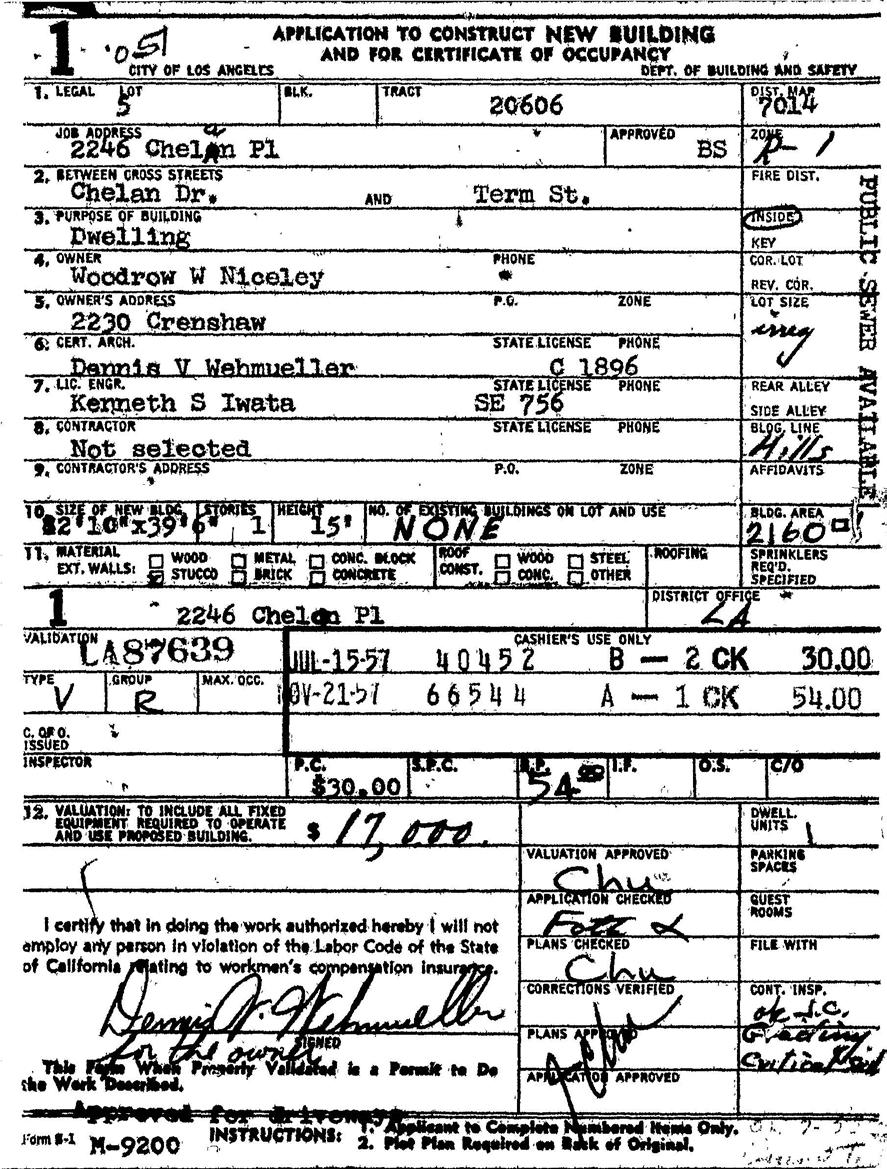 1 051 APPLICATION TO CONSTRUCT NEW BUILDING
AND FOR CERTIFICATE OF OCCUPANCY
CITY OF LOS ANGELES DEPT. OF BUILDING AND SAFETY
1. LEGAL LOT BLK. TRACT DIST. MAP
5 20606 7014
JOB ADDRESS APPROVED ZONE
2246 Chelan Pl BS R-1
2. BETWEEN CROSS STREETS FIRE DIST.
Chelan Dr. AND Term St.
3. PURPOSE OF BUILDING INSIDE
Dwelling KEY
4. OWNER PHONE COR. LOT
Woodrow W Niceley REV. COR.
5. OWNER'S ADDRESS P.O. ZONE LOT SIZE
2230 Crenshaw irreg
6. CERT. ARCH. STATE LICENSE PHONE
Dennis V Wehmueller C 1896
7. LIC. ENGR. STATE LICENSE PHONE REAR ALLEY
Kenneth S Iwata SE 756 SIDE ALLEY
8. CONTRACTOR STATE LICENSE PHONE BLDG. LINE
Not selected Hills
9. CONTRACTOR'S ADDRESS P.O. ZONE AFFIDAVITS
PUBLIC SEWER AVAILABLE
10. SIZE OF NEW BLDG. STORIES HEIGHT NO. OF EXISTING BUILDINGS ON LOT AND USE BLDG. AREA
82'10"x39'6" 1 15' NONE 2160 □'
11. MATERIAL EXT. WALLS: WOOD METAL CONC. BLOCK ROOF CONST. WOOD STEEL ROOFING SPRINKLERS REQ'D. SPECIFIED
STUCCO BRICK CONCRETE CONC. OTHER
1 2246 Chelan Pl DISTRICT OFFICE
LA
VALIDATION CASHIER'S USE ONLY
LA87639 JUL-15-57 40452 B — 2 CK 30.00
TYPE GROUP MAX. OCC.
V R NOV-21-57 66544 A — 1 CK 54.00
C. OF O.
ISSUED
INSPECTOR P.C. S.P.C. B.P. I.F. O.S. C/O
$30.00 54.00
12. VALUATION: TO INCLUDE ALL FIXED
EQUIPMENT REQUIRED TO OPERATE
AND USE PROPOSED BUILDING. $ 17,000.
DWELL. UNITS 1
VALUATION APPROVED PARKING SPACES
Chu
APPLICATION CHECKED GUEST ROOMS
I certify that in doing the work authorized hereby I will not
employ any person in violation of the Labor Code of the State
of California relating to workmen's compensation insurance.
PLANS CHECKED FILE WITH
Chu
CORRECTIONS VERIFIED CONT. INSP.
ok S.C.
Dennis V. Wehmueller
SIGNED
for the owner
PLANS APPROVED Grading
Critical Soil
This Form When Properly Validated is a Permit to Do
the Work Described.
APPLICATION APPROVED
Approved for driveways
Form B-1 M-9200 INSTRUCTIONS: 1. Applicant to Complete Numbered Items Only.
2. Plot Plan Required on Back of Original.